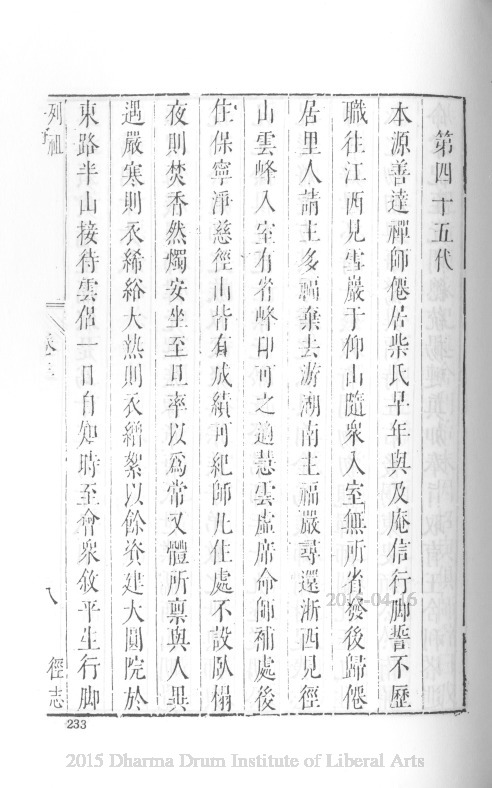 第四十五代
本源善達禪師僊居柴氏早年與及庵信行脚誓不歷
職往江西見雪巖于仰山隨衆入室無所省發後歸僊
居里人請主多福棄去游湖南主福嚴尋還浙西見徑
山雲峰入室有省峰印可之適慧雲虛席命師補處後
住保寧淨慈徑山皆有成績可紀師凡住處不設臥榻
夜則焚香然燭安坐至旦率以爲常又體所禀與人異
遇嚴寒則衣絺綌大熱則衣繒絮以餘資建大圓院於
東路半山接待雲侶一日自知時至會衆敘平生行脚
列祖
卷三
八
徑志
233
2015-04-16
2015 Dharma Drum Institute of Liberal Arts